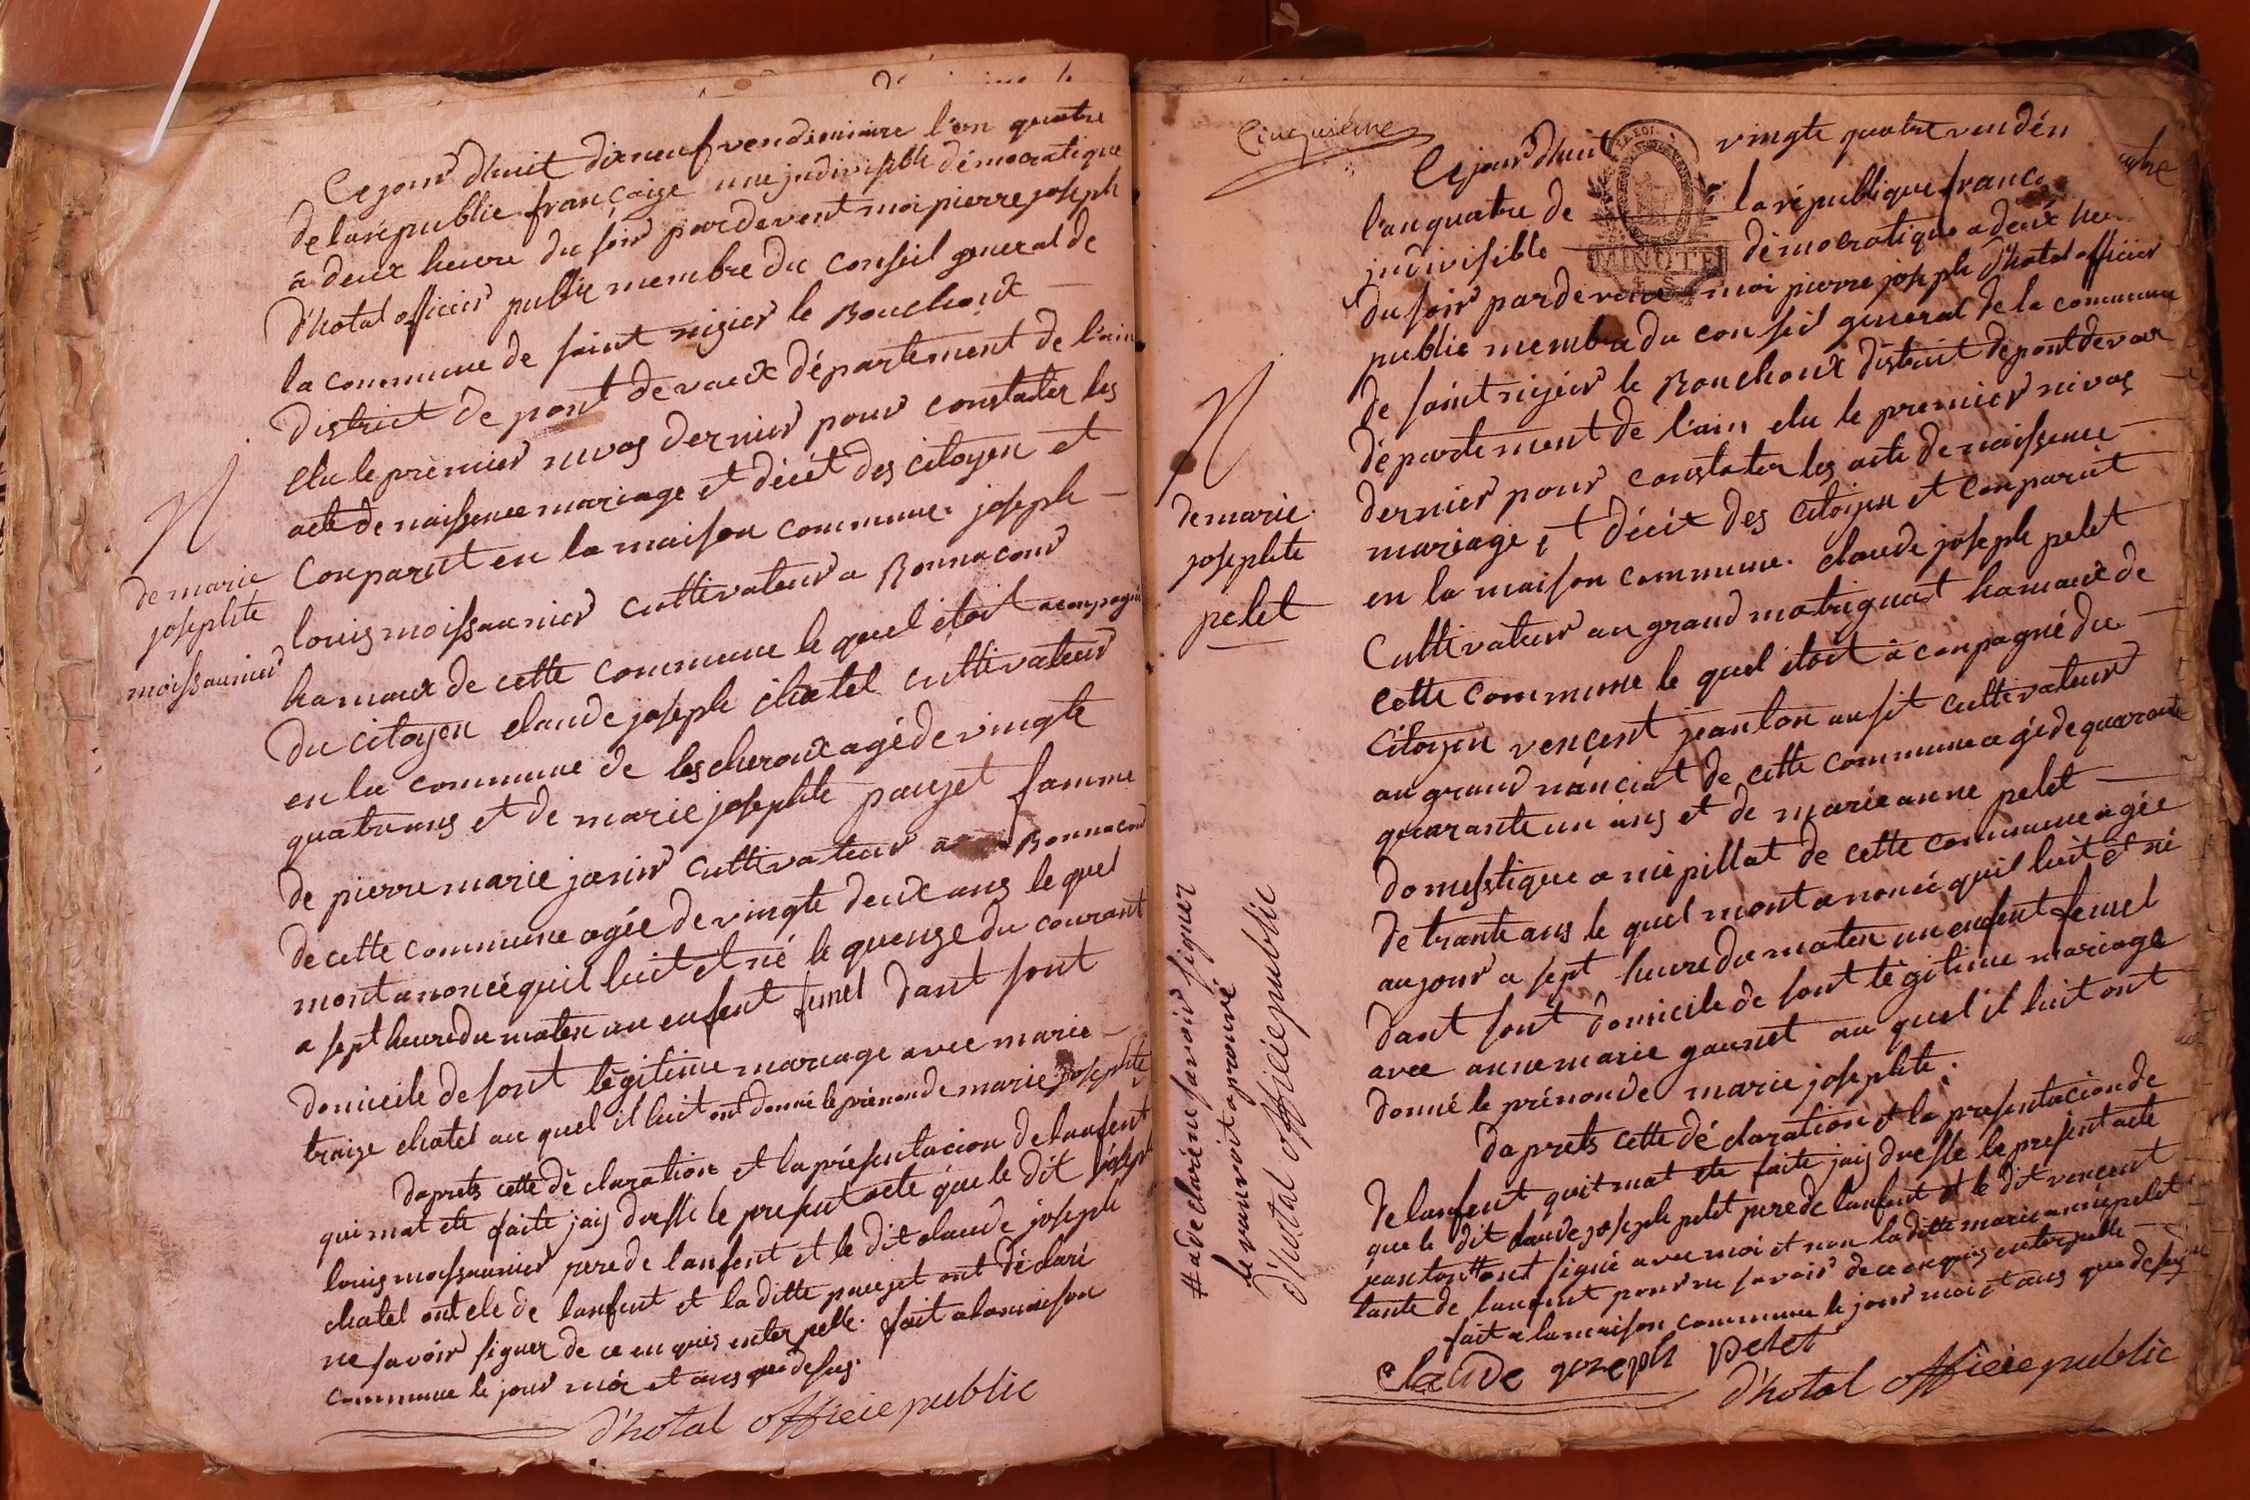 Ce jour d'huit dixneuf vendemiaire l'an quatre
de la république françaize une jndivisible démocratique
a deux heure du soir pardevent moi pierre joseph
d'hotal officier public membre du conseil general de
la commune de saint nizier le Bouchoux
district de pont devaux département de l'ain
elu le premier nivos dernier pour constater les
acte de naissence mariage et décét des citoyen et
Conparut en la maison commune. joseph
louis moissaunier cultivateur a Bonnacour
hamaux de cette commune le quel étoit aconpagné
du citoyen claude joseph chatel cultivateur
en la commune de lescheroux agé de vingte
quatre ans et de marie josephte paujet famme
de pierre marie janin cultivateur a Bonnacour
de cette commune agée de vingte deux ans le quel
mont anoncé quil luit et né le quenze du courant
a sept heure du maten un enfent femel dant sont
domicile de sont légitime mariage avec marie
traize chatel au quel il luit ont donné le prénon de marie josephte
daprets cette déclaration et la présentacion de lanfent
qui mat ete faite jais dressé le presentacte que le dit joseph
louis moissaunier pere de lanfent et le dit claude joseph
chatel oncle de lanfent et la ditte paujet ont déclaré
ne savoir signer de ce en quis enterpellé. fait a la maison
commune le jour moi et ans que desus.
d'hotal officie public
N
de marie
josephte
moissaunier
Cinquiéme
Ce jour d'huit vingte quatre vendém
l'an quatre de la république franc
jndivisible démocratique a deux heu
du soir pardevent moi pierre joseph d'hotal officier
public membre du conseil general de la commune
de saint nizier le Bouchoux district de pont devaux
département de l'ain elu le premier nivos
dernier pour constater les acte de naissence
mariage et décét des citoyen et conparut
en la maison commune. claude joseph pelet
Cultivateur au grand matrignat hamaux de
cette commune le quel étoit aconpagné du
Citoyen vencent jeanton ausit cultivateur
au grand nanciat de cette commune agé de quarante
quarante un ans et de marie anne pelet
domesstique a mépillat de cette commune agée
de trante ans le quel mont anoncé quil luit et né
aujour a sept heure du maten un enfent femel
dant sont domicile de sont légitime mariage
avec anne marie gaunet au quel il luit ont
donné le prénon de marie josephte.
daprets cette déclaration et la presentacion de
de lanfent quit mat ete faite jais dressé le present acte
que le dit claude joseph pelet pere de lanfent et le dit vencent
jeanton # ont signé avec moi et non la ditte marie anne pelet
tante de lanfent pour ne savoir de ce en quis enterpellé
fait a la maison commune le jour moi et ans que desus
Claude joseph pelet
d'hotal officie public
N
de marie
josephte
pelet
# a déclaré ne savoir signer
le ranvoit aprouvé
d'hotal officie public